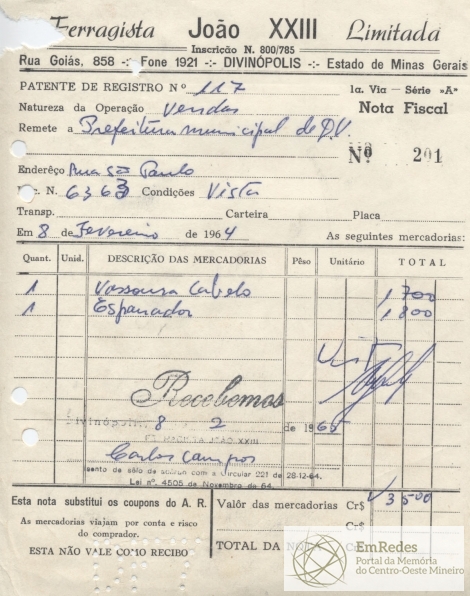 Ferragista João XXIII Limitada
Inscrição N. 800/785
Rua Goiás, 858 -:- Fone 1921 -:- DIVINÓPOLIS -:- Estado de Minas Gerais
PATENTE DE REGISTRO Nº 117
1a. Via — Série »A«
Natureza da Operação Vendas
Nota Fiscal
Remete a Prefeitura municipal de DV
Nº 201
Enderêço Rua São Paulo
N. 6363 Condições Vista
Transp. Carteira Placa
Em 8 de Fevereiro de 1964 As seguintes mercadorias:
Quant. Unid. DESCRIÇÃO DAS MERCADORIAS Pêso Unitário TOTAL
1 Vassoura Cabelo 1700
1 Espanador 1800
Recebemos
Divinópolis 8 2 de 1965
JOÃO XXIII
Carlos Campos
sento de sêlo de acôrdo com a Circular 221 de 28-12-64.
Lei nº. 4505 de Novembro de 64.
Esta nota substitui os coupons do A. R.
Valor das mercadorias Cr$ 3500
As mercadorias viajam por conta e risco
do comprador.
Cr$
ESTA NÃO VALE COMO RECIBO
TOTAL DA
EmRedes
Portal da Memória
do Centro-Oeste Mineiro